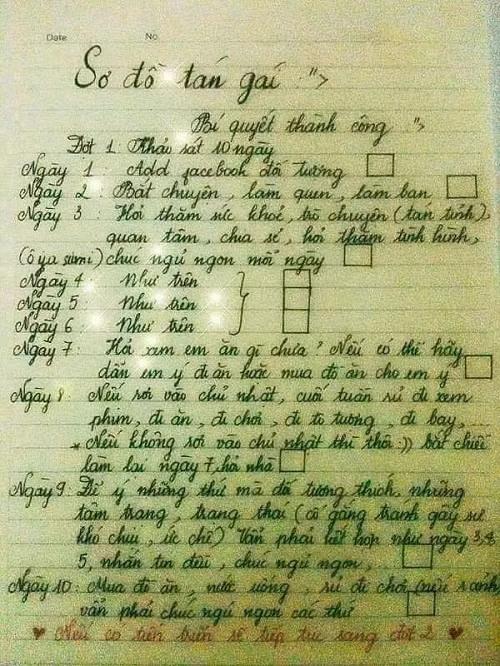 Date No.
Sơ đồ tán gái :">
Bí quyết thành công :">
Đợt 1: Khảo sát 10 ngày
Ngày 1: Add facebook đối tượng
Ngày 2: Bắt chuyện, làm quen, làm bạn
Ngày 3: Hỏi thăm sức khoẻ, trò chuyện (tán tỉnh),
quan tâm, chia sẻ, hỏi thăm tình hình,
(ôyasumi) chúc ngủ ngon mỗi ngày
Ngày 4: Như trên
Ngày 5: Như trên
Ngày 6: Như trên
Ngày 7: Hỏi xem em ăn gì chưa? Nếu có thể hãy
dẫn em ý đi ăn hoặc mua đồ ăn cho em ý
Ngày 8: Nếu rơi vào chủ nhật, cuối tuần rủ đi xem
phim, đi ăn, đi chơi, đi tô tượng, đi bay,...
* Nếu không rơi vào chủ nhật thì thôi :)) bắt chiếc
làm lại ngày 7, hả nhá
Ngày 9: Để ý những thứ mà đối tượng thích, những
tâm trạng, trạng thái (cố gắng tránh gây sự
khó chịu, ức chế) Vẫn phải kết hợp như ngày 3,4,
5, nhắn tin đều, chúc ngủ ngon,...
Ngày 10: Mua đồ ăn, nước uống, rủ đi chơi (nếu rảnh)
vẫn phải chúc ngủ ngon các thứ
♥ Nếu có tiến triển sẽ tiếp tục sang đợt 2 ♥